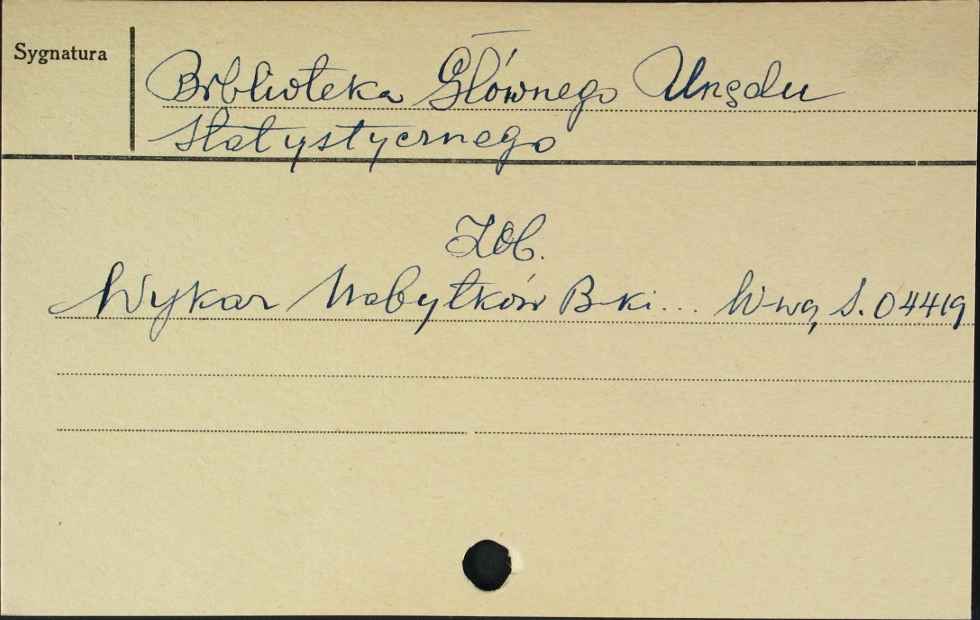 Sygnatura
Biblioteka Głównego Urzędu
Statystycznego
Zob.
Wykaz Nabytków B-ki... W-wa, S.04419